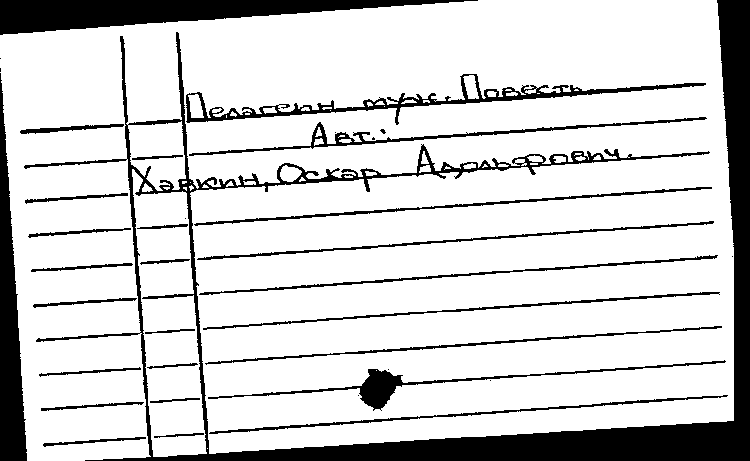 Пелагеин муж. Повесть.
Авт.:
Хавкин, Оскар Адольфович.